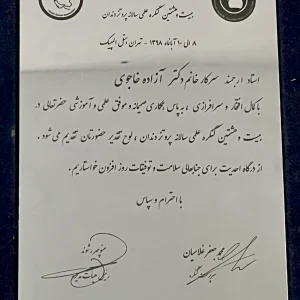 بیست و هشتمین کنگره علمی سالانه پروتز دندان
۸ الی ۱۰ آبانماه ۱۳۹۸ - تهران، هتل المپیک
استاد ارجمند سرکار خانم دکتر آزاده خاجوی
با کمال افتخار و سرافرازی، به پاس همکاری صمیمانه و موفق علمی و آموزشی حضرتعالی در
بیست و هشتمین کنگره علمی سالانه پروتز دندان، لوح تقدیر حضورتان تقدیم می شود.
از درگاه احدیت برای جنابعالی سلامت و توفیقات روز افزون خواستاریم.
با احترام و سپاس
محمد جعفر غلامیان
منوچهر رشوند